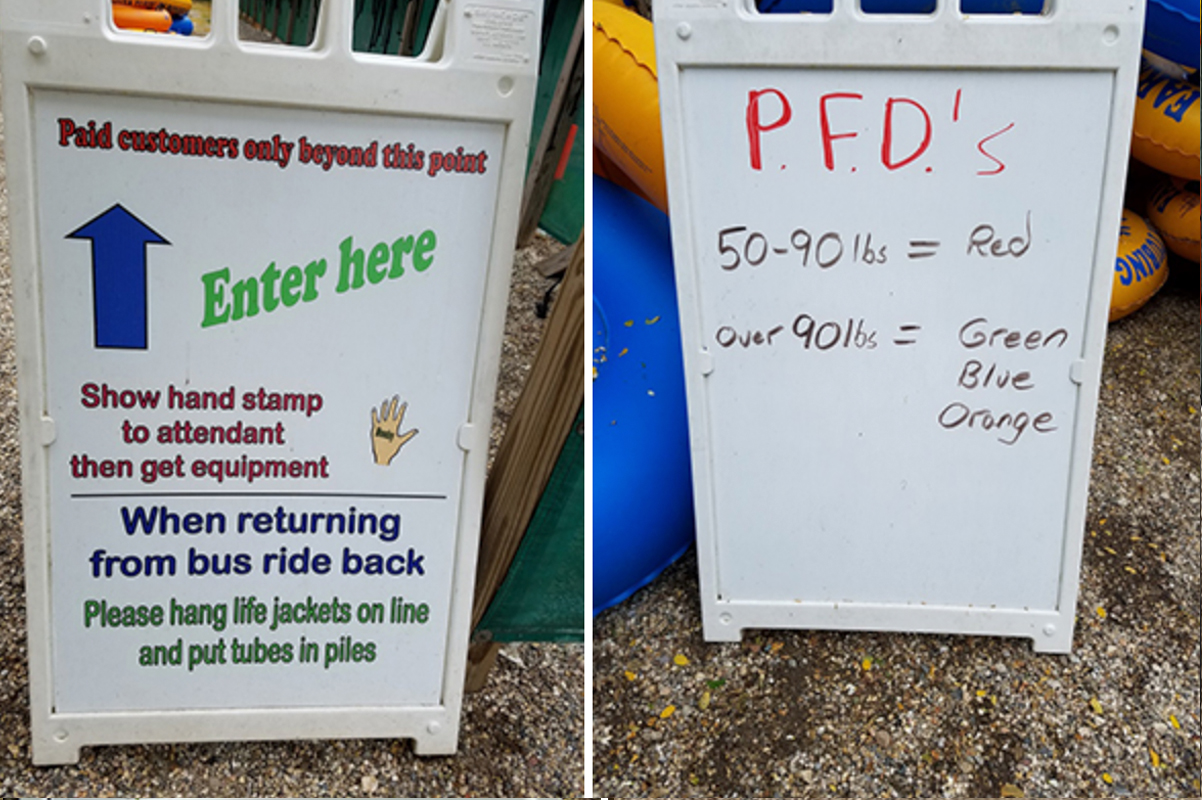 Paid customers only beyond this point
Enter here
Show hand stamp
to attendant
then get equipment
When returning
from bus ride back
Please hang life jackets on line
and put tubes in piles
P.F.D.'s
50-90 lbs = Red
over 90 lbs = Green
Blue
Orange